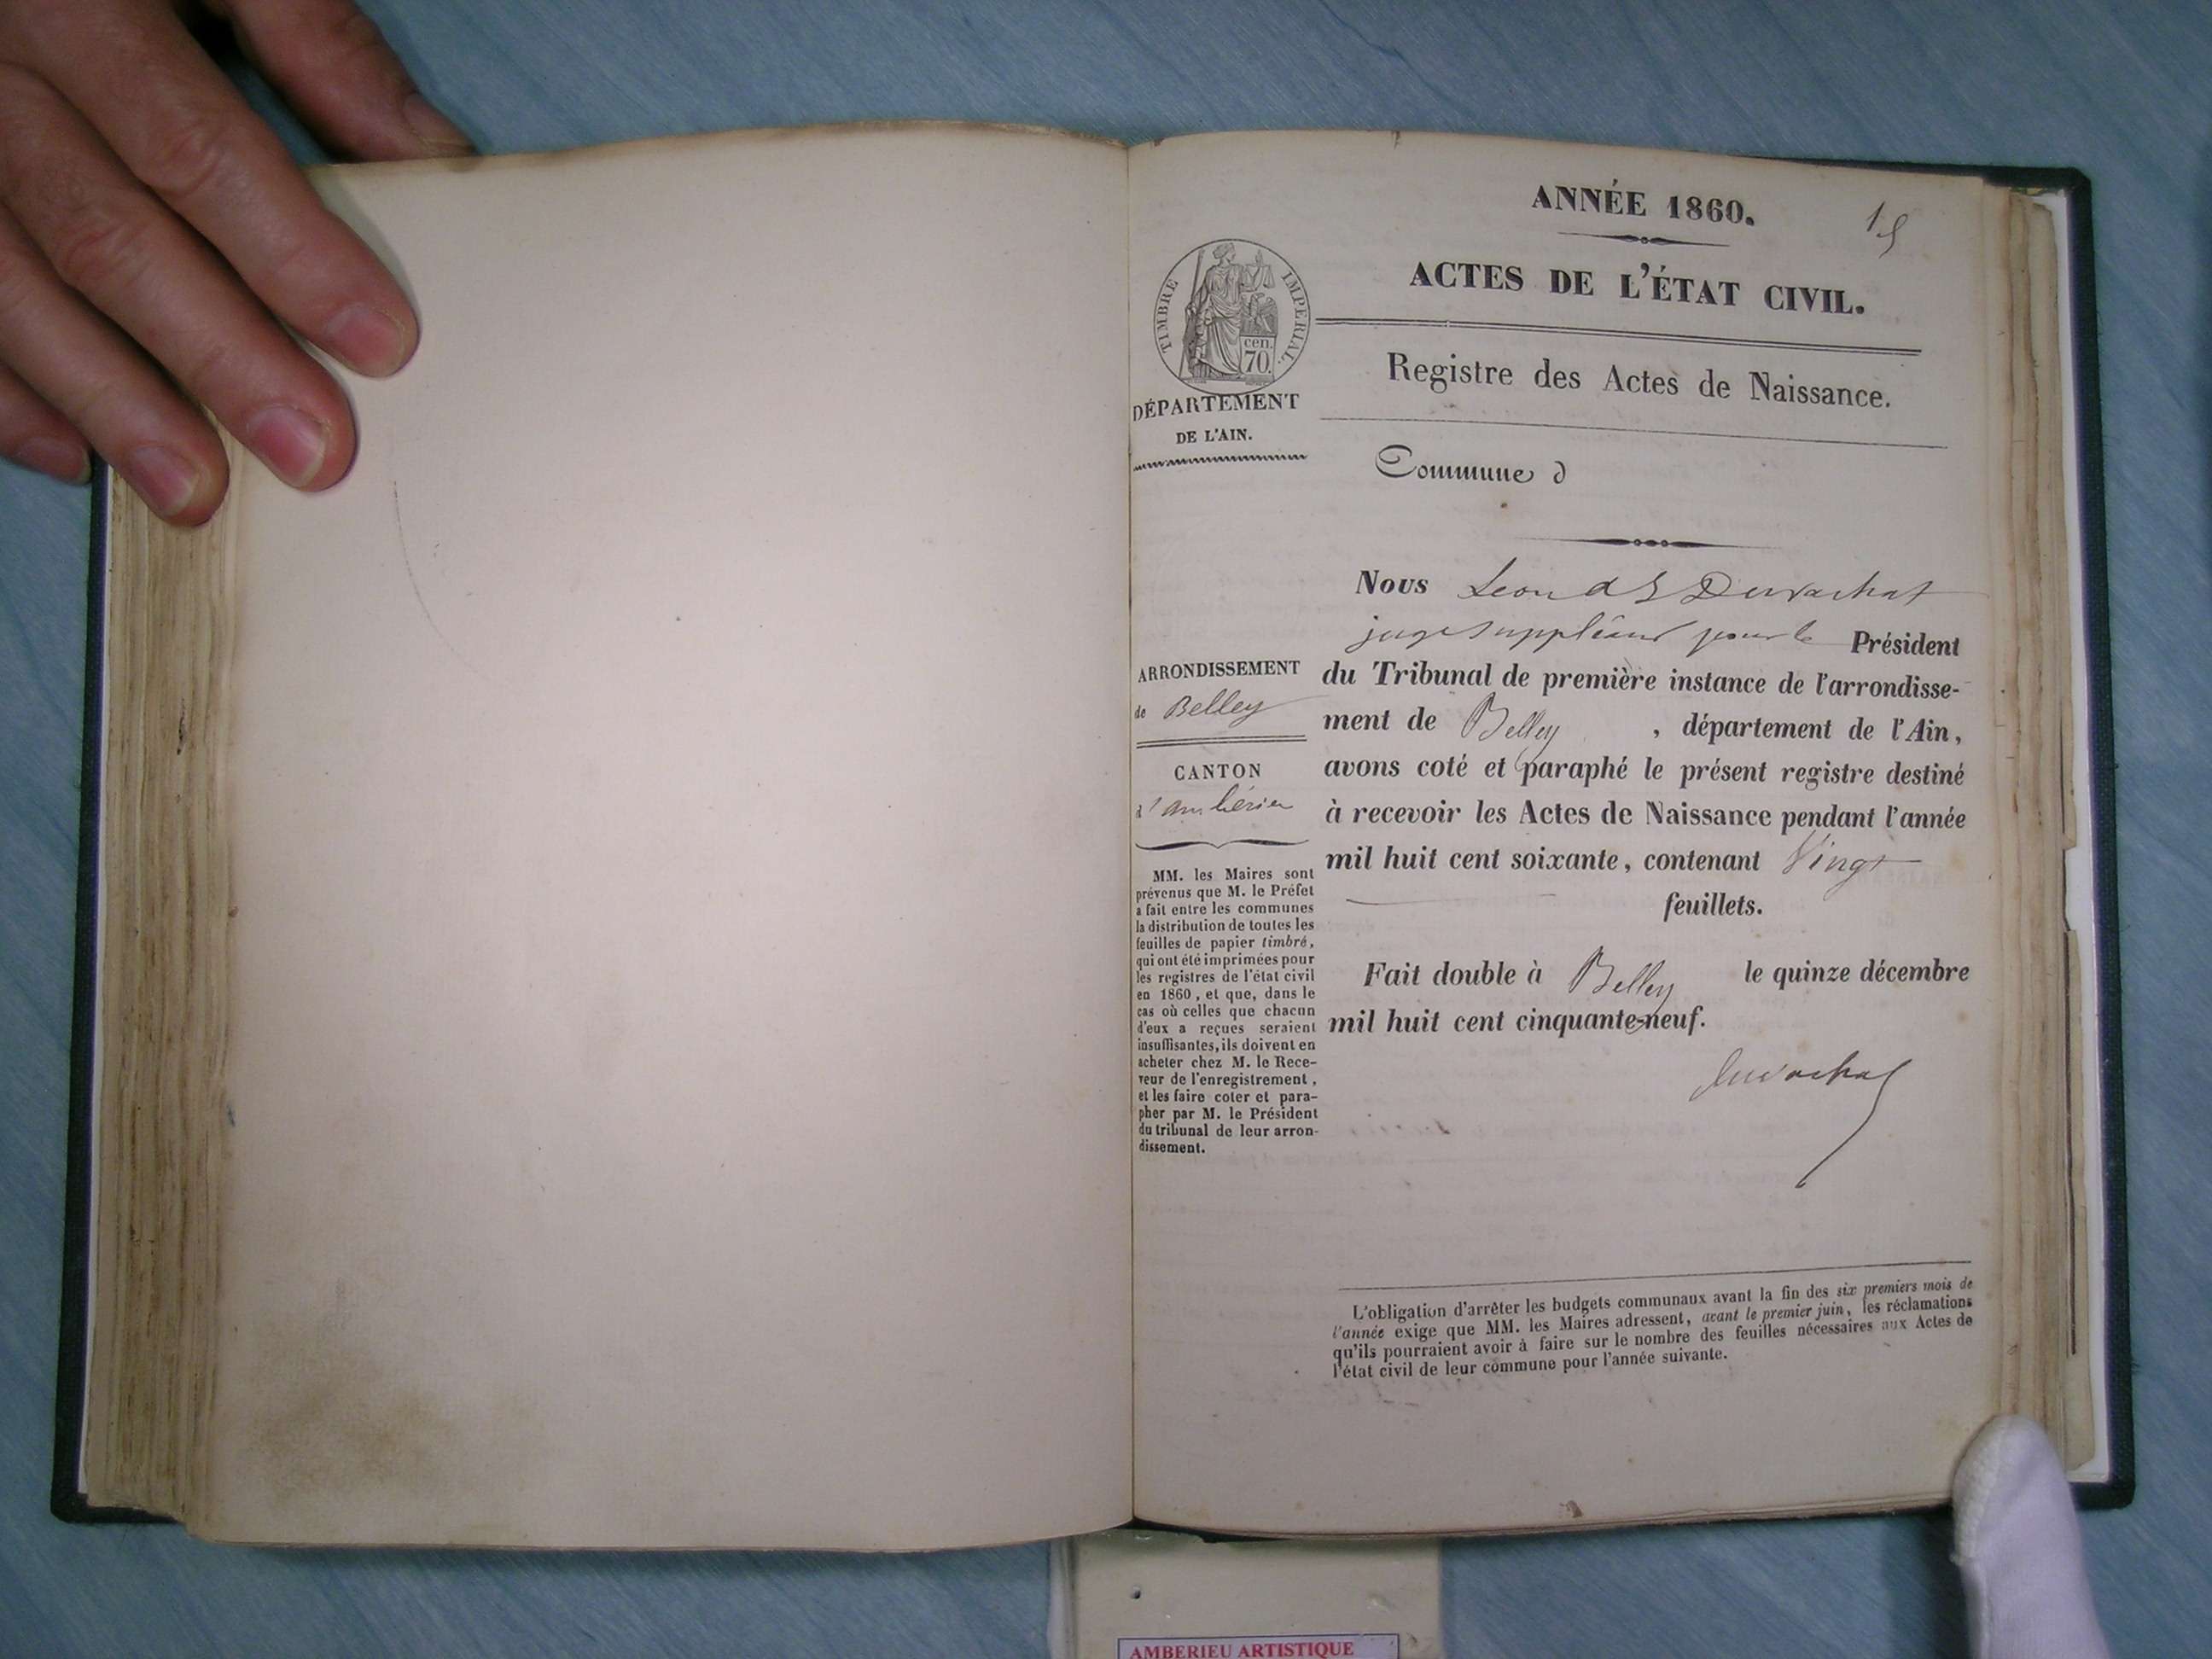 ANNÉE 1860.
ACTES DE L'ÉTAT CIVIL.
Registre des Actes de Naissance.
TIMBRE IMPERIAL.
cen.
70.
DÉPARTEMENT
DE L'AIN.
Commune d
ARRONDISSEMENT
de Belley
CANTON
d'ambérieu
MM. les Maires sont
prévenus que M. le Préfet
a fait entre les communes
la distribution de toutes les
feuilles de papier timbré,
qui ont été imprimées pour
les registres de l'état civil
en 1860, et que, dans le
cas où celles que chacun
d'eux a reçues seraient
insuffisantes, ils doivent en
acheter chez M. le Rece-
veur de l'enregistrement,
et les faire coter et para-
pher par M. le Président
du tribunal de leur arron-
dissement.
Nous Leon Duvachat
juge suppléant pour le Président
du Tribunal de première instance de l'arrondisse-
ment de Belley, département de l'Ain,
avons coté et paraphé le présent registre destiné
à recevoir les Actes de Naissance pendant l'année
mil huit cent soixante, contenant Vingt
feuillets.
Fait double à Belley le quinze décembre
mil huit cent cinquante-neuf.
Duvachat
L'obligation d'arrêter les budgets communaux avant la fin des six premiers mois de
l'année exige que MM. les Maires adressent, avant le premier juin, les réclamations
qu'ils pourraient avoir à faire sur le nombre des feuilles nécessaires aux Actes de
l'état civil de leur commune pour l'année suivante.
AMBERIEU ARTISTIQUE